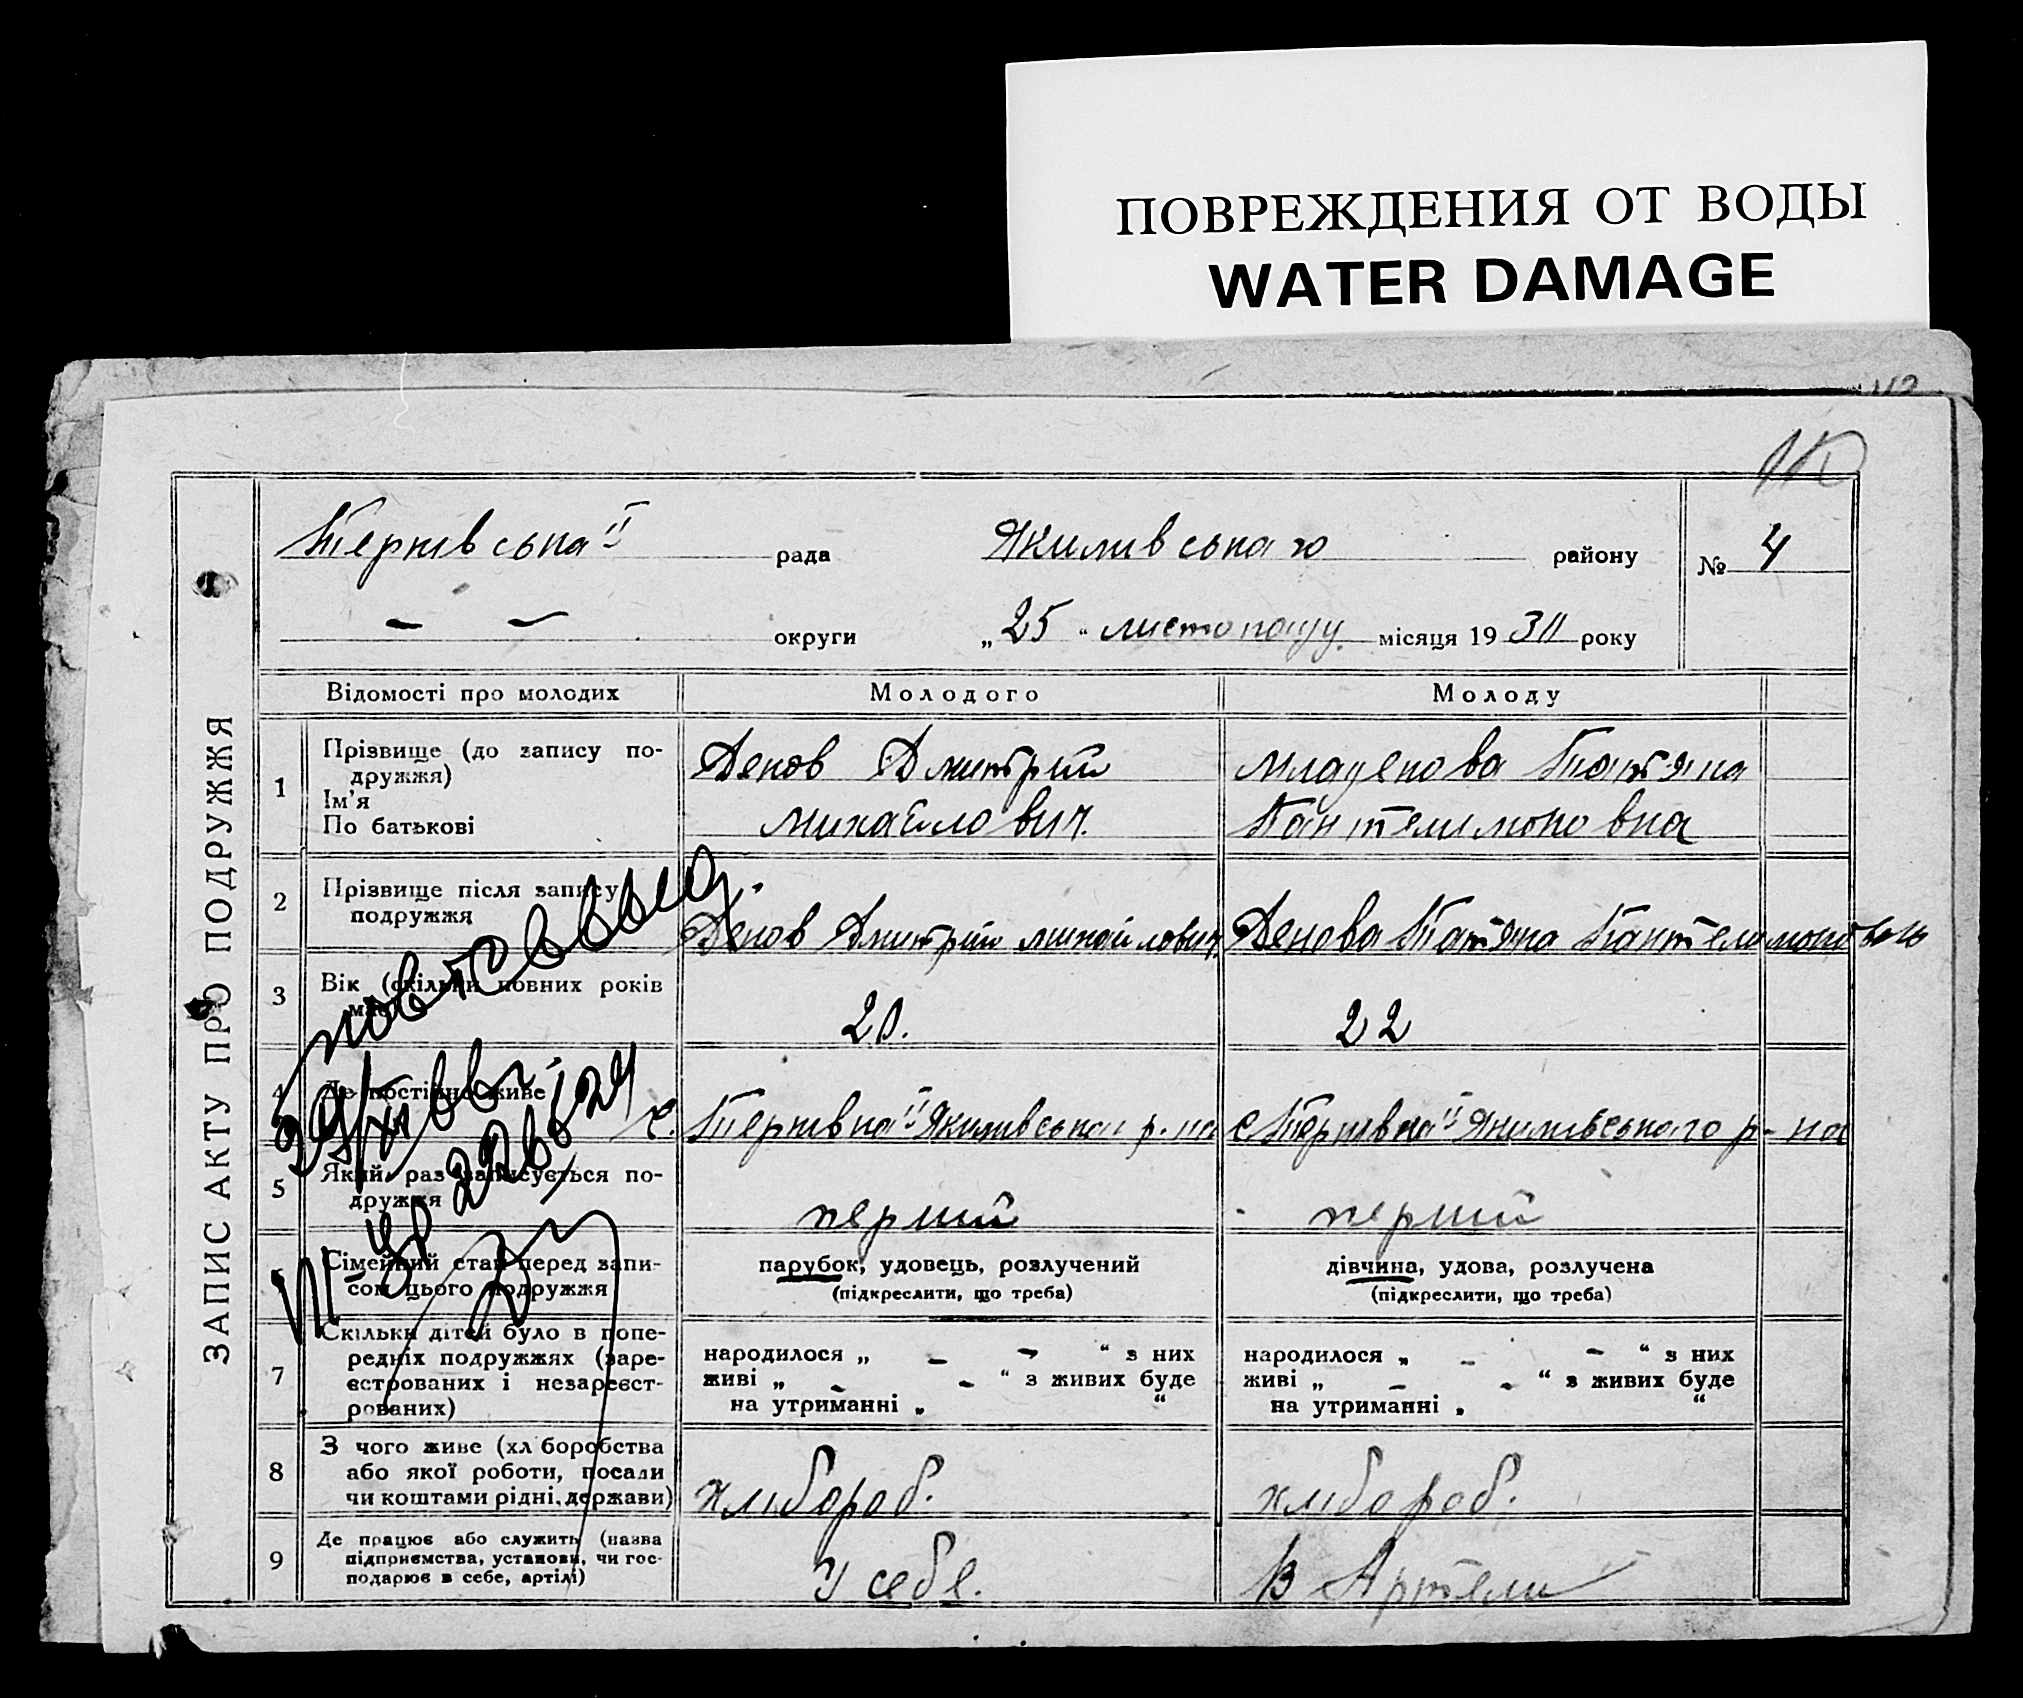 ПОВРЕЖДЕНИЯ ОТ ВОДЫ
WATER DAMAGE
ЗАПИС АКТУ ПРО ПОДРУЖЖЯ
рада
району
№ 4
— — округи
„25“ листопаду місяця 19 року
Відомості про молодих
Молодого
Молоду
1
Прізвище (до запису по-
дружжя)
Ім'я
По батькові
Денов Дмитрій
Михайлович.
Младенова Татяна
Пантелимоновна
2
Прізвище після запису
подружжя
Денов Дмитрій Михайлович.
Денова Татяна
3
Вік (скільки повних років
має)
20.
22
4
Де постійно живе
с.
р-на
с
р-на
5
Який раз записується по-
дружжя
перший
перший
6
Сімейний стан перед запи-
сом цього подружжя
парубок, удовець, розлучений
(підкреслити, що треба)
дівчина, удова, розлучена
(підкреслити, що треба)
7
Скільки дітей було в попе-
редніх подружжях (заре-
єстрованих і незареєст-
рованих)
народилося „ – – “ з них
живі „ – – “ з живих буде
на утриманні „ “
народилося „ – – “ з них
живі „ – – “ з живих буде
на утриманні „ “
8
З чого живе (хліборобства
або якої роботи, посади
чи коштами рідні, держави)
хлібороб.
хлібороб.
9
Де працює або служить (назва
підприємства, установи, чи гос-
подарює в себе, артілі)
У себе.
В Артели